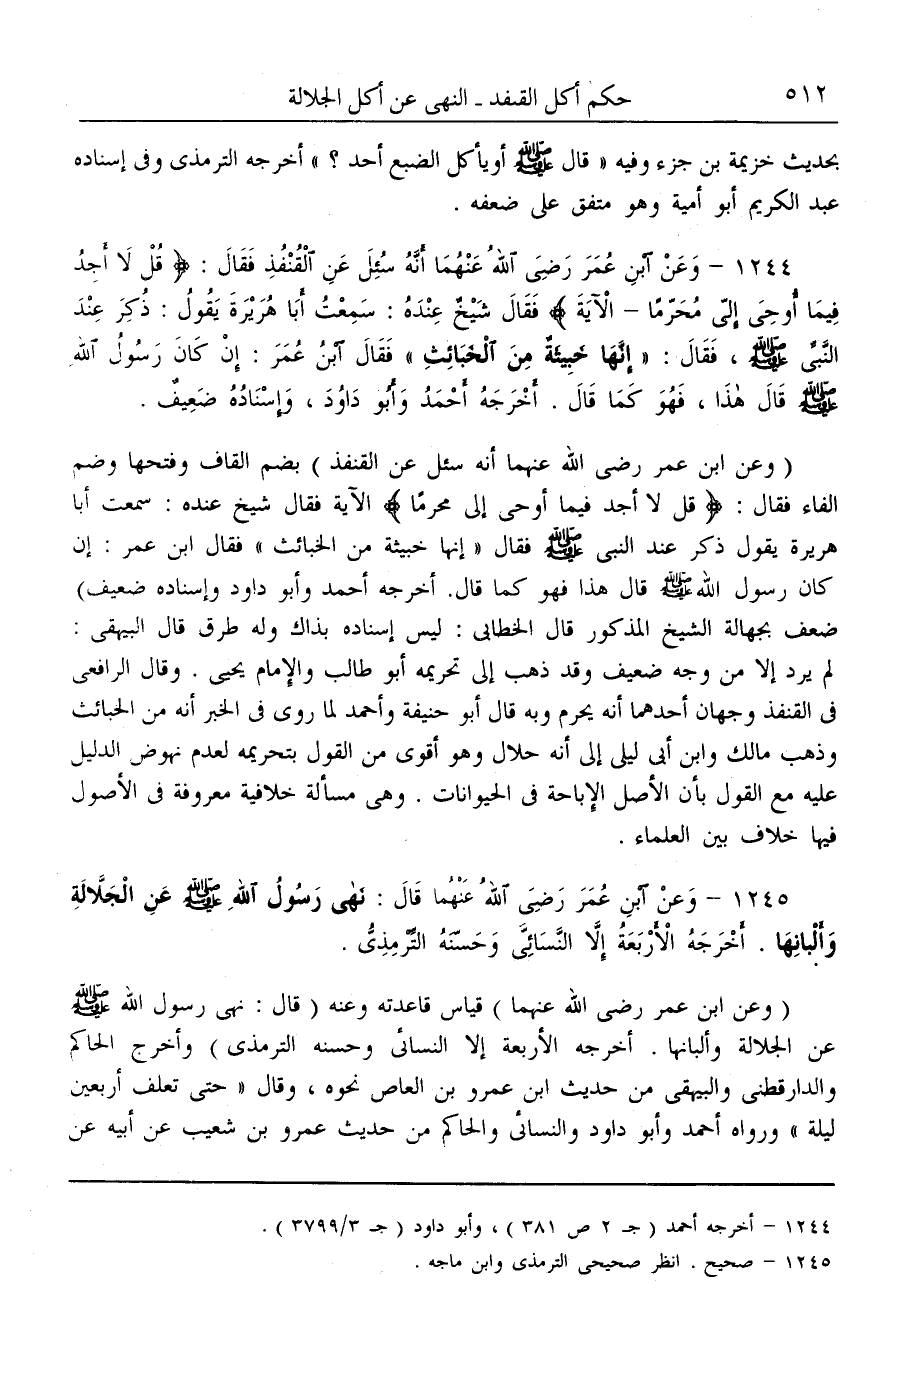 ٥١٢ حكم أكل القنفد ـ النهى عن أكل الجلالة
بحديث خزيمة بن جزء وفيه « قال ﷺ أويأكل الضبع أحد ؟ » أخرجه الترمذى وفى إسناده
عبد الكريم أبو أمية وهو متفق على ضعفه .
١٢٤٤ – وَعَنْ ٱبنِ عُمَرَ رَضِىَ ٱللهُ عَنْهُمَا أَنَّهُ سُئِلَ عَنِ ٱلْقُنْفُذِ فَقَالَ : ﴿ قُلْ لَا أَجِدُ
فِيمَا أُوحِىَ إِلىّ مُحَرّمًا – الْآيَةَ ﴾ فَقَالَ شَيْخٌ عِنْدَهُ : سَمِعْتُ أَبَا هُرَيْرَةَ يَقُولُ : ذُكِرَ عِنْدَ
النَّبىِّ ﷺ ، فَقَالَ : « إِنَّهَا خَبِيثَةٌ مِنَ ٱلْخَبَائِثِ » فَقَالَ ٱبنُ عُمَرَ : إِنْ كَانَ رَسُولُ ٱللهِ
ﷺ قَالَ هٰذَا ، فَهُوَ كَمَا قَالَ . أَخْرَجَهُ أَحْمَدُ وَأَبُو دَاوُدَ ، وَإِسْنَادُهُ ضَعِيفٌ .
( وعن ابن عمر رضى الله عنهما أنه سئل عن القنفذ ) بضم القاف وفتحها وضم
الفاء فقال : ﴿ قل لا أجد فيما أوحى إلى محرمًا ﴾ الآية فقال شيخ عنده : سمعت أبا
هريرة يقول ذكر عند النبى ﷺ فقال « إنها خبيثة من الخبائث » فقال ابن عمر : إن
كان رسول الله ﷺ قال هذا فهو كما قال. أخرجه أحمد وأبو داود وإسناده ضعيف)
ضعف بجهالة الشيخ المذكور قال الخطابى : ليس إسناده بذاك وله طرق قال البيهقى :
لم يرد إلا من وجه ضعيف وقد ذهب إلى تحريمه أبو طالب والإمام يحيى . وقال الرافعى
فى القنفذ وجهان أحدهما أنه يحرم وبه قال أبو حنيفة وأحمد لما روى فى الخبر أنه من الخبائث
وذهب مالك وابن أبى ليلى إلى أنه حلال وهو أقوى من القول بتحريمه لعدم نهوض الدليل
عليه مع القول بأن الأصل الإباحة فى الحيوانات . وهى مسألة خلافية معروفة فى الأصول
فيها خلاف بين العلماء .
١٢٤٥ – وَعَنْ ٱبْنِ عُمَرَ رَضِىَ ٱللهُ عَنْهُما قَالَ : نَهٰى رَسُولُ ٱللهِ ﷺ عَنِ الْجَلَّالَةِ
وَأَلْبانِهَا . أَخْرَجَهُ الْأَرْبَعَةُ إِلَّا النَّسَائِىَّ وَحَسّنَهُ التِّرْمِذِىُّ .
( وعن ابن عمر رضى الله عنهما ) قياس قاعدته وعنه ( قال : نهى رسول الله ﷺ
عن الجلالة وألبانها . أخرجه الأربعة إلا النسائى وحسنه الترمذى ) وأخرج الحاكم
والدارقطنى والبيهقى من حديث ابن عمرو بن العاص نحوه ، وقال « حتى تعلف أربعين
ليلة » ورواه أحمد وأبو داود والنسائى والحاكم من حديث عمرو بن شعيب عن أبيه عن
١٢٤٤ – أخرجه أحمد ( جـ ٢ ص ٣٨١ ) ، وأبو داود ( جـ ٣٧٩٩/٣ ) .
١٢٤٥ – صحيح . انظر صحيحى الترمذى وابن ماجه .